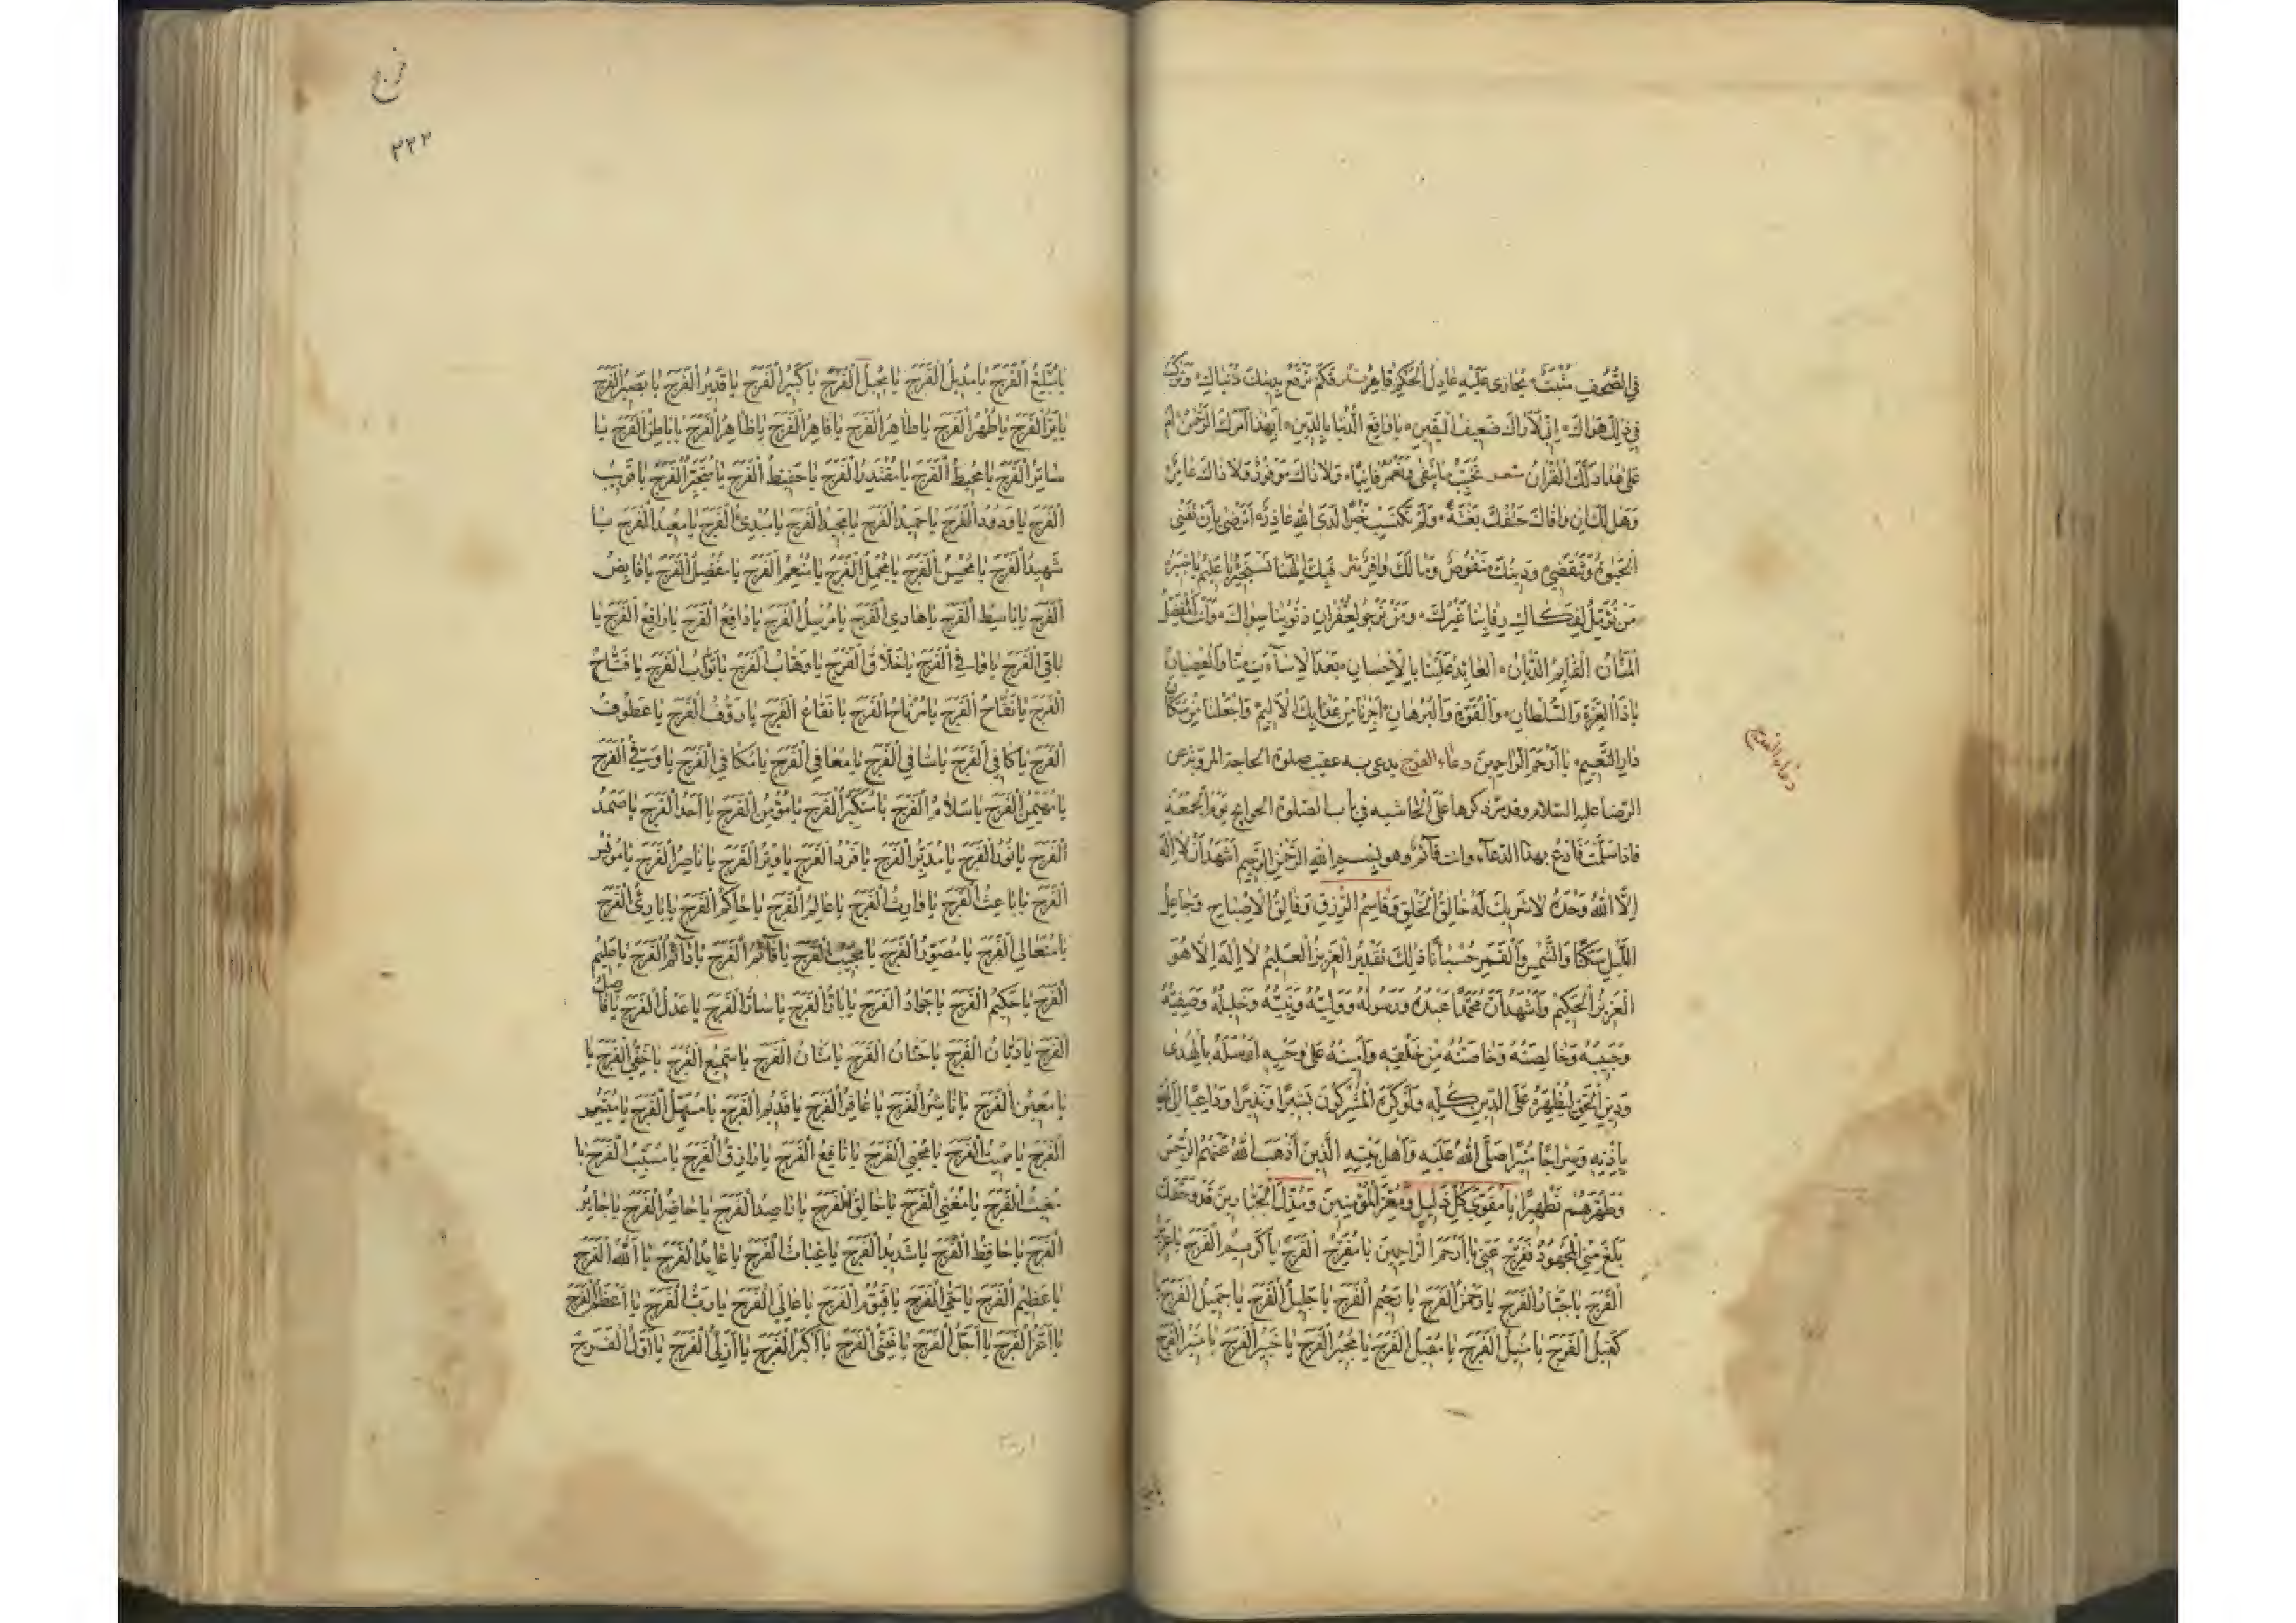 في الصُّحُفِ مُثْبَتٌ يُجازى عَلَيْهِ عادِلُ الْحُكْمِ قاهِرُ فَكَمْ تَرْقَعُ بِدينِكَ دُنْياكَ وَتَرْكَبُ
في ذلِكَ هَواكَ إنّي لَأَراكَ ضَعيفَ الْيَقينِ يا راقِعَ الدُّنْيا بِالدّينِ أبِهذا أمَرَكَ الرَّحْمنُ أمْ
عَلى هذا دَلَّكَ الْقُرْآنُ شعر تُخَرِّبُ ما يَبْقى وَتَعْمُرُ فانِيًا وَلا ذاكَ مَوْفورٌ وَلا ذاكَ عامِرٌ
وَهَلْ لَكَ إنْ وافاكَ حَتْفُكَ بَغْتَةً وَلَمْ تَكْتَسِبْ خَيْرًا لَدَى اللهِ عاذِرٌ أتَرْضى بِأنْ تَفْنَى
الْحَيوةُ وَتَنْقَضي وَدينُكَ مَنْقوصٌ وَمالُكَ وافِرٌ فَبِكَ إلهَنا نَسْتَجيرُ يا عَليمُ يا خَبيرُ
مَنْ نُؤَمِّلُ لِفَكاكِ رِقابِنا غَيْرَكَ وَمَنْ نَرْجو لِغُفْرانِ ذُنوبِنا سِواكَ وَأنْتَ الْمُتَفَضِّلُ
الْمَنّانُ الْقائِمُ الدَّيّانُ الْعائِدُ عَلَيْنا بِالْإحْسانِ بَعْدَ الْإساءَةِ مِنّا وَالْعِصْيانِ
يا ذَا الْعِزَّةِ وَالسُّلْطانِ وَالْقُوَّةِ وَالْبُرْهانِ أجِرْنا مِنْ عَذابِكَ الْأليمِ وَاجْعَلْنا مِنْ سُكّانِ
دارِ النَّعيمِ يا أرْحَمَ الرّاحِمينَ دعاء الفرج يدعى به عقيب صلوة الحاجة المروية عن
الرّضا عليه السّلام وقد مرّ ذكرها على الحاشيه في باب الصّلوة الحوائج يَوْمَ الْجُمْعَةِ
فاذا سَلَّمْتَ فَادْعُ بهذا الدّعاء وانت قآئمٌ وهو بِسْمِ اللهِ الرَّحْمنِ الرَّحيمِ أشْهَدُ أنْ لا إلهَ
إلَّا اللهُ وَحْدَهُ لا شَريكَ لَهُ خالِقُ الْخَلْقِ وَقاسِمُ الرِّزْقِ وَفالِقُ الْإصْباحِ وَجاعِلُ
اللَّيْلِ سَكَنًا وَالشَّمْسِ وَالْقَمَرِ حُسْبانًا ذلِكَ تَقْديرُ الْعَزيزِ الْعَليمِ لا إلهَ إلّا هُوَ
الْعَزيزُ الْحَكيمُ وَأشْهَدُ أنَّ مُحَمَّدًا عَبْدُهُ وَرَسولُهُ وَوَلِيُّهُ وَنَبِيُّهُ وَخَليلُهُ وَصَفِيُّهُ
وَحَبيبُهُ وَخالِصَتُهُ وَخاصَّتُهُ مِنْ خَلْقِهِ وَأمينُهُ عَلى وَحْيِهِ أرْسَلَهُ بِالْهُدى
وَدينِ الْحَقِّ لِيُظْهِرَهُ عَلَى الدّينِ كُلِّهِ وَلَوْ كَرِهَ الْمُشْرِكونَ بَشيرًا وَنَذيرًا وَداعِيًا إلَى اللهِ
بِإذْنِهِ وَسِراجًا مُنيرًا صَلَّى اللهُ عَلَيْهِ وَأهْلِ بَيْتِهِ الَّذينَ أذْهَبَ اللهُ عَنْهُمُ الرِّجْسَ
وَطَهَّرَهُمْ تَطْهيرًا يا مُقَوِّيَ كُلِّ ذَليلٍ وَمُعِزَّ الْمُؤْمِنينَ وَمُذِلَّ الْجَبّارينَ قَدْ وَحَقِّكَ
بَلَغَ مِنِّي الْمَجْهودُ فَفَرِّجْ عَنّي يا أرْحَمَ الرّاحِمينَ يا مُفَرِّجَ الْفَرَجِ يا كَريمَ الْفَرَجِ يا عَزيزَ
الْفَرَجِ يا جَبّارَ الْفَرَجِ يا رَحْمنَ الْفَرَجِ يا رَحيمَ الْفَرَجِ يا جَليلَ الْفَرَجِ يا جَميلَ الْفَرَجِ يا
كَفيلَ الْفَرَجِ يا مُنيلَ الْفَرَجِ يا مُقيلَ الْفَرَجِ يا مُجيرَ الْفَرَجِ يا خَبيرَ الْفَرَجِ يا مُنيرَ الْفَرَجِ
دعاء الفرج
فرج
٣٢٢
يا مُبَلِّغَ الْفَرَجِ يا مُديلَ الْفَرَجِ يا مُحيلَ الْفَرَجِ يا كَبيرَ الْفَرَجِ يا قَديرَ الْفَرَجِ يا بَصيرَ الْفَرَجِ
يا بَرَّ الْفَرَجِ يا طُهْرَ الْفَرَجِ يا طاهِرَ الْفَرَجِ يا قاهِرَ الْفَرَجِ يا ظاهِرَ الْفَرَجِ يا باطِنَ الْفَرَجِ يا
ساتِرَ الْفَرَجِ يا مُحيطَ الْفَرَجِ يا مُقْتَدِرَ الْفَرَجِ يا حَفيظَ الْفَرَجِ يا مُتَجَبِّرَ الْفَرَجِ يا قَريبَ
الْفَرَجِ يا وَدودَ الْفَرَجِ يا حَميدَ الْفَرَجِ يا مَجيدَ الْفَرَجِ يا مُبْدِئَ الْفَرَجِ يا مُعيدَ الْفَرَجِ يا
شَهيدَ الْفَرَجِ يا مُحْسِنَ الْفَرَجِ يا مُجْمِلَ الْفَرَجِ يا مُنْعِمَ الْفَرَجِ يا مُفْضِلَ الْفَرَجِ يا قابِضَ
الْفَرَجِ يا باسِطَ الْفَرَجِ يا هادِيَ الْفَرَجِ يا مُرْسِلَ الْفَرَجِ يا دافِعَ الْفَرَجِ يا رافِعَ الْفَرَجِ يا
باقِيَ الْفَرَجِ يا واقِيَ الْفَرَجِ يا خَلّاقَ الْفَرَجِ يا وَهّابَ الْفَرَجِ يا تَوّابَ الْفَرَجِ يا فَتّاحَ
الْفَرَجِ يا نَفّاحَ الْفَرَجِ يا مُرْتاحَ الْفَرَجِ يا نَفّاعَ الْفَرَجِ يا رَؤُفَ الْفَرَجِ يا عَطوفَ
الْفَرَجِ يا كافِيَ الْفَرَجِ يا شافِيَ الْفَرَجِ يا مُعافِيَ الْفَرَجِ يا مُكافِيَ الْفَرَجِ يا وَفِيَّ الْفَرَجِ
يا مُهَيْمِنَ الْفَرَجِ يا سَلامَ الْفَرَجِ يا مُتَكَبِّرَ الْفَرَجِ يا مُؤْمِنَ الْفَرَجِ يا أحَدَ الْفَرَجِ يا صَمَدَ
الْفَرَجِ يا نورَ الْفَرَجِ يا مُدَبِّرَ الْفَرَجِ يا فَرْدَ الْفَرَجِ يا وِتْرَ الْفَرَجِ يا ناصِرَ الْفَرَجِ يا مونِسَ
الْفَرَجِ يا باعِثَ الْفَرَجِ يا وارِثَ الْفَرَجِ يا عالِمَ الْفَرَجِ يا حاكِمَ الْفَرَجِ يا بارِئَ الْفَرَجِ
يا مُتَعالِيَ الْفَرَجِ يا مُصَوِّرَ الْفَرَجِ يا مُجيبَ الْفَرَجِ يا قآئِمَ الْفَرَجِ يا دآئِمَ الْفَرَجِ يا عَليمَ
الْفَرَجِ يا حَكيمَ الْفَرَجِ يا جَوادَ الْفَرَجِ يا بارَّ الْفَرَجِ يا سارَّ الْفَرَجِ يا عَدْلَ الْفَرَجِ يا فاصِلَ
الْفَرَجِ يا دَيّانَ الْفَرَجِ يا حَنّانَ الْفَرَجِ يا مَنّانَ الْفَرَجِ يا سَميعَ الْفَرَجِ يا خَفِيَّ الْفَرَجِ يا
يا مُعينَ الْفَرَجِ يا ناشِرَ الْفَرَجِ يا غافِرَ الْفَرَجِ يا قَديمَ الْفَرَجِ يا مُسَهِّلَ الْفَرَجِ يا مُيَسِّرَ
الْفَرَجِ يا مُميتَ الْفَرَجِ يا مُحْيِيَ الْفَرَجِ يا نافِعَ الْفَرَجِ يا رازِقَ الْفَرَجِ يا مُسَبِّبَ الْفَرَجِ يا
مُغيثَ الْفَرَجِ يا مُغْنِيَ الْفَرَجِ يا خالِقَ الْفَرَجِ يا راصِدَ الْفَرَجِ يا حاضِرَ الْفَرَجِ يا جابِرَ
الْفَرَجِ يا حافِظَ الْفَرَجِ يا شَديدَ الْفَرَجِ يا غِياثَ الْفَرَجِ يا عائِدَ الْفَرَجِ يا اَللهَ الْفَرَجِ
يا عَظيمَ الْفَرَجِ يا حَيَّ الْفَرَجِ يا قَيّومَ الْفَرَجِ يا عالِيَ الْفَرَجِ يا رَبَّ الْفَرَجِ يا أعْظَمَ الْفَرَجِ
يا أعَزَّ الْفَرَجِ يا أجَلَّ الْفَرَجِ يا غَنِيَّ الْفَرَجِ يا أكْبَرَ الْفَرَجِ يا أزَلِيَّ الْفَرَجِ يا أوَّلَ الْفَرَجِ